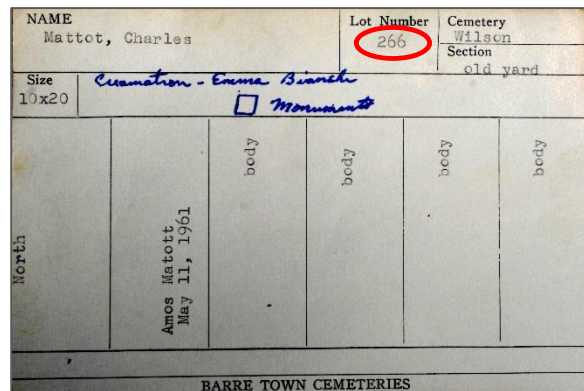 NAME
Mattot, Charles
Lot Number
266
Cemetery
Wilson
Section
old yard
Size
10x20
Cuamation - Emma Bianchi
Monument
North
Amos Matott
May 11, 1961
body
body
body
body
BARRE TOWN CEMETERIES